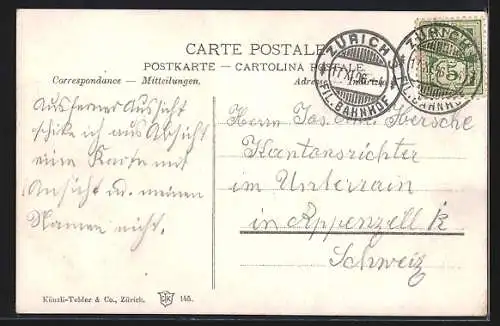 CARTE POSTALE
POSTKARTE — CARTOLINA POSTALE
Correspondance — Mitteilungen.
ZÜRICH
17.XI.06.
FIL. BAHNHOF
ZÜRICH
FIL. BAHNHOF
5
Aus ferner Aussicht
schicke ich aus Absicht
eine Karte mit
Ansicht u. meinen
Namen nicht.
Herrn Jos. Ant. Hersche
Kantonsrichter
im Unterrain
in Appenzell K
Schweiz
Künzli-Tobler & Co., Zürich.
145.